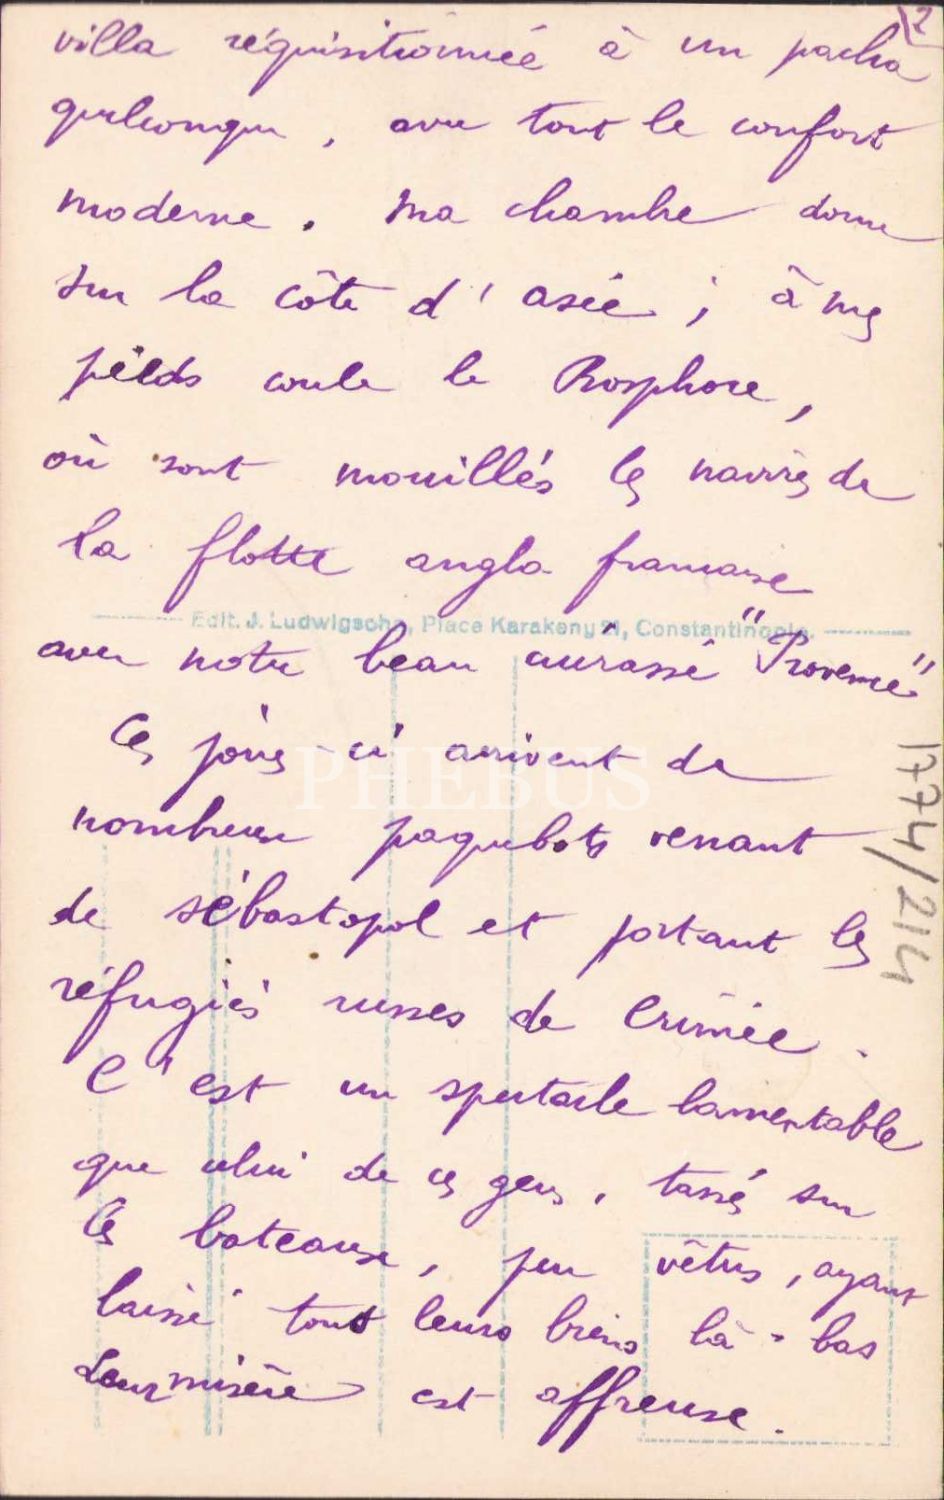 2
villa réquisitionnée à un pacha
quelconque, avec tout le confort
moderne. Ma chambre donne
sur la côte d'asie ; à mes
pieds coule le Bosphore,
où sont mouillés les navires de
la flotte anglo-francaise
Edit. J. Ludwigsohn, Place Karakeny 21, Constantinople.
avec notre beau cuirassé "Provence"
Ces jours-ci arrivent de
PHEBUS
nombreux paquebots venant
de sébastopol et portant les
réfugiés russes de Crimée.
C'est un spectacle lamentable
que celui de ces gens, tassés sur
les bateaux, peu vêtus, ayant
laissé tout leurs biens là-bas
Leur misère est affreuse.
1774/214